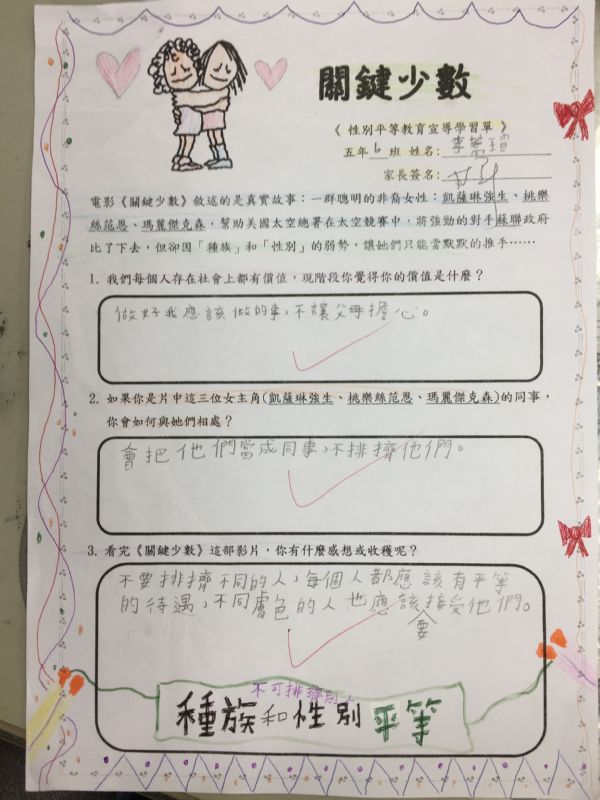 關鍵少數
《 性別平等教育宣導學習單 》
五年 6 班 姓名:
家長簽名:
電影《關鍵少數》敘述的是真實故事：一群聰明的非裔女性：凱薩琳強生、桃樂
絲范恩、瑪麗傑克森，幫助美國太空總署在太空競賽中，將強勁的對手蘇聯政府
比了下去，但卻因「種族」和「性別」的弱勢，讓她們只能當默默的推手……
1. 我們每個人存在社會上都有價值，現階段你覺得你的價值是什麼？
做好我應該做的事，不讓父母擔心。
2. 如果你是片中這三位女主角(凱薩琳強生、桃樂絲范恩、瑪麗傑克森)的同事，
你會如何與她們相處？
會把他們當成同事，不排擠他們。
3. 看完《關鍵少數》這部影片，你有什麼感想或收穫呢？
不要排擠不同的人，每個人都應該有平等
的待遇，不同膚色的人也應該接受他們。
要
不可排擠別人
種族和性別平等